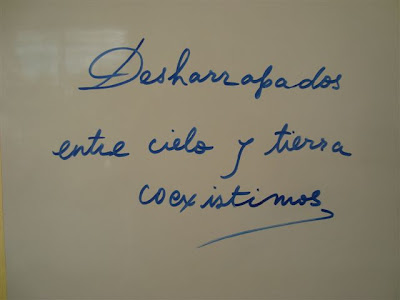 Desharrapados
entre cielo y tierra
coexistimos